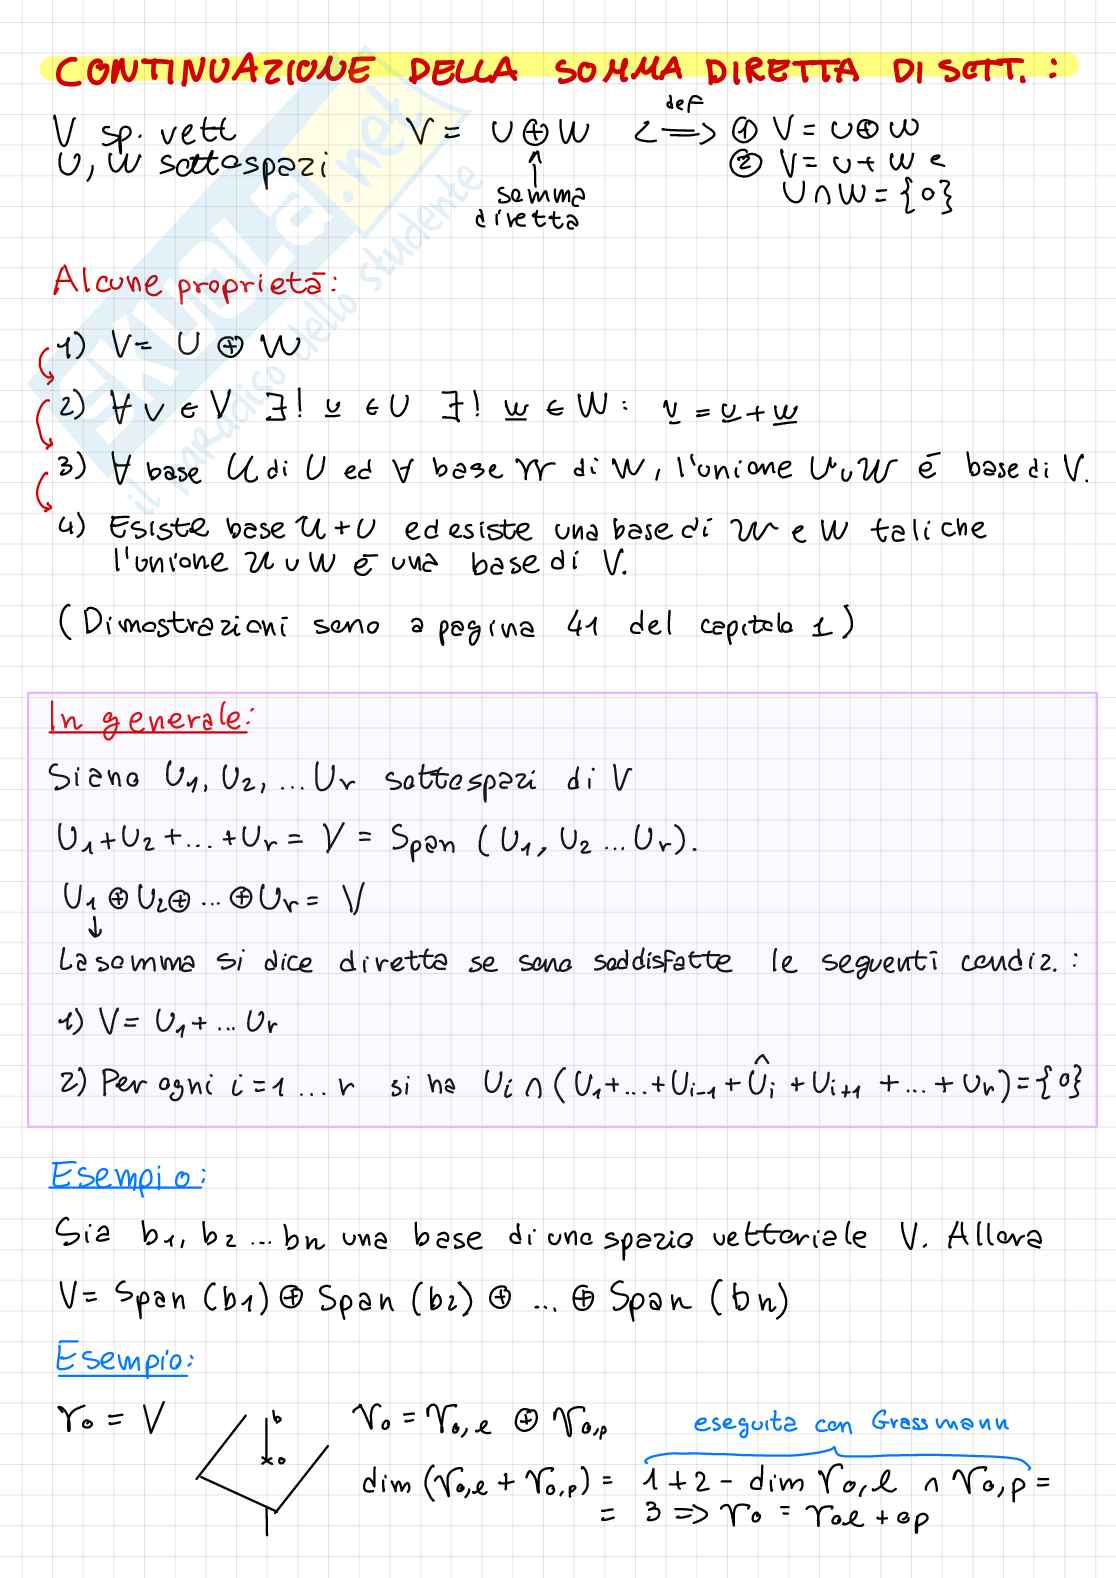 CONTINUAZIONE DELLA SOMMA DIRETTA DI SOTT. :
V sp. vett
U, W sottospazi
V = U ⊕ W
somma
diretta
<=> def
① V = U ⊕ W
② V = U + W e
U ∩ W = {0}
Alcune proprietà:
1) V = U ⊕ W
2) ∀ v ∈ V ∃! u ∈ U ∃! w ∈ W : v = u + w
3) ∀ base U di U ed ∀ base W di W, l'unione U ∪ W é base di V.
4) Esiste base U + U ed esiste una base di W e W tali che
l'unione U ∪ W é una base di V.
(Dimostrazioni sono a pagina 41 del capitolo 1)
In generale:
Siano U1, U2, ... Ur sottospazi di V
U1 + U2 + ... + Ur = V = Span (U1, U2 ... Ur).
U1 ⊕ U2 ⊕ ... ⊕ Ur = V
↓
La somma si dice diretta se sono soddisfatte le seguenti condiz. :
1) V = U1 + ... Ur
2) Per ogni i = 1 ... r si ha Ui ∩ (U1 + ... + Ui-1 + Ûi + Ui+1 + ... + Ur) = {0}
Esempio:
Sia b1, b2 ... bn una base di uno spazio vettoriale V. Allora
V = Span (b1) ⊕ Span (b2) ⊕ ... ⊕ Span (bn)
Esempio:
γo = V
b
o
γo = γo,e ⊕ γo,p
eseguita con Grassmann
dim (γo,e + γo,p) = 1 + 2 - dim γo,e ∩ γo,p =
= 3 => γo = γoe + op
SKUOLA.net
il paradiso dello studente